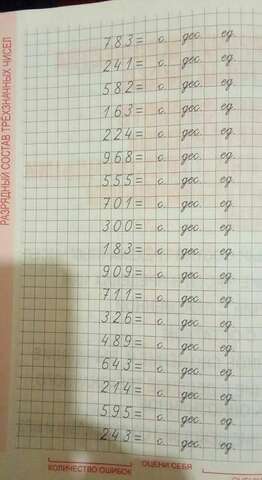 РАЗРЯДНЫЙ СОСТАВ ТРЁХЗНАЧНЫХ ЧИСЕЛ
783= с. дес. ед.
241= с. дес. ед.
582= с. дес. ед.
163= с. дес. ед.
224= с. дес. ед.
968= с. дес. ед.
555= с. дес. ед.
701= с. дес. ед.
300= с. дес. ед.
183= с. дес. ед.
909= с. дес. ед.
711= с. дес. ед.
326= с. дес. ед.
489= с. дес. ед.
643= с. дес. ед.
214= с. дес. ед.
595= с. дес. ед.
243= с. дес. ед.
КОЛИЧЕСТВО ОШИБОК ОЦЕНИ СЕБЯ